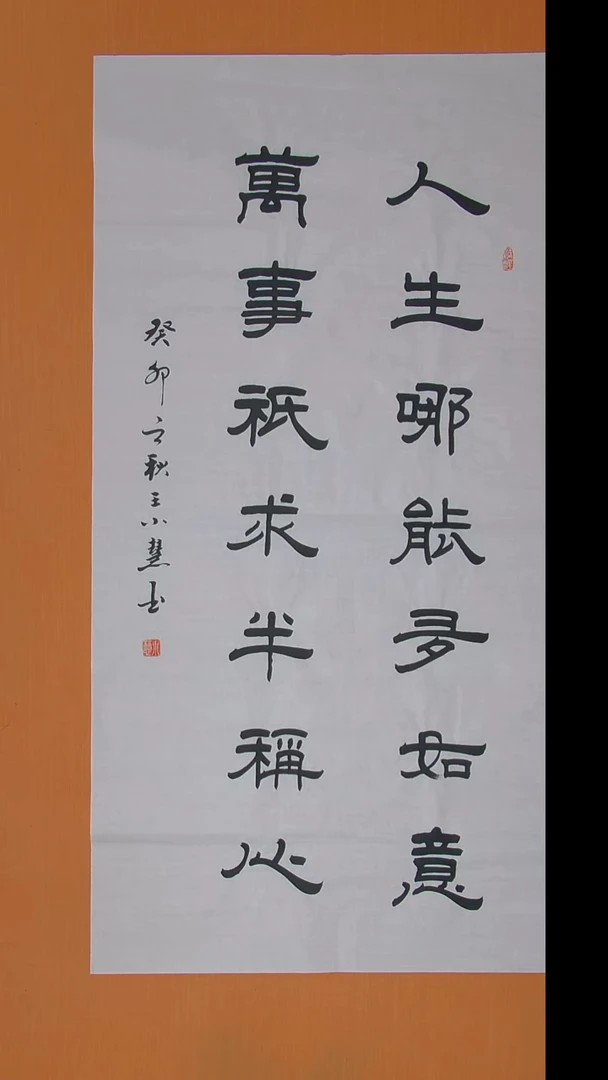 人生哪能多如意
萬事祇求半稱心
癸卯秋王小慧书